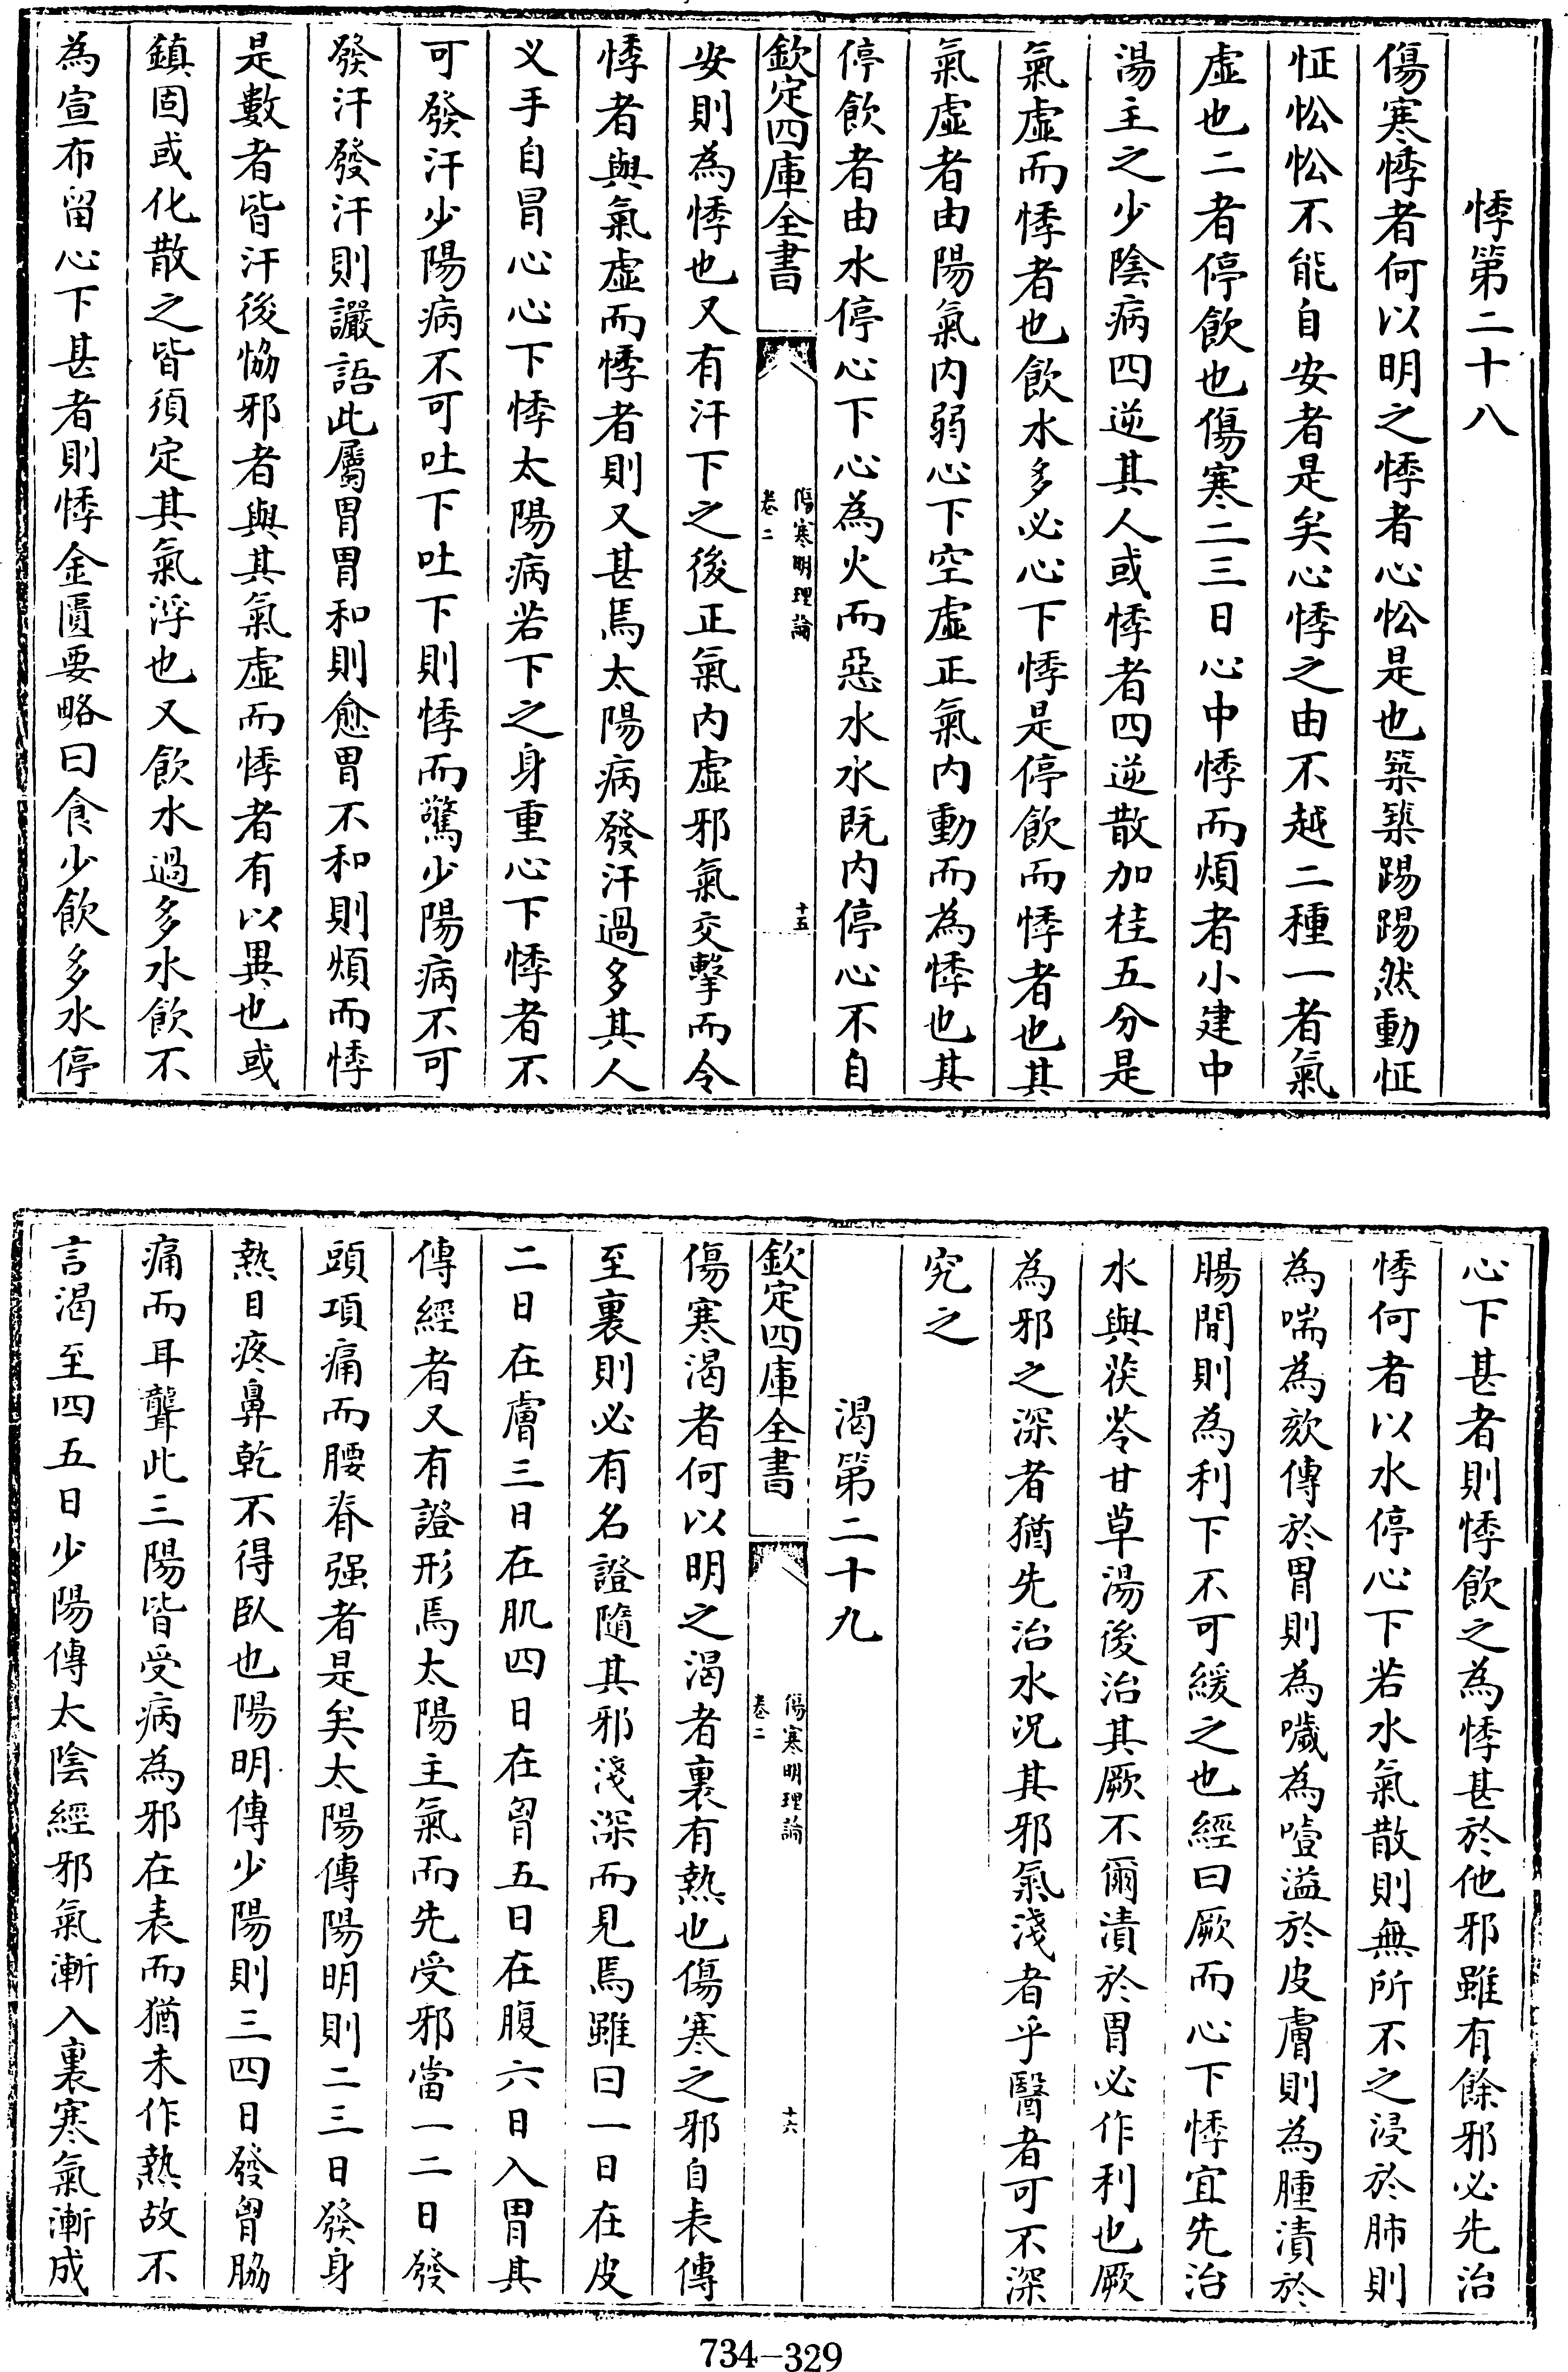 悸第二十八
傷寒悸者何以明之悸者心忪是也築築踢踢然動怔
怔忪忪不能自安者是矣心悸之由不越二種一者氣
虛也二者停飲也傷寒二三日心中悸而煩者小建中
湯主之少陰病四逆其人或悸者四逆散加桂五分是
氣虛而悸者也飲水多必心下悸是停飲而悸者也其
氣虛者由陽氣内弱心下空虛正氣内動而為悸也其
停飲者由水停心下心為火而惡水水既内停心不自
欽定四庫全書
傷寒明理論
卷二
十五
安則為悸也又有汗下之後正氣内虛邪氣交擊而令
悸者與氣虛而悸者則又甚焉太陽病發汗過多其人
义手自冒心心下悸太陽病若下之身重心下悸者不
可發汗少陽病不可吐下吐下則悸而驚少陽病不可
發汗發汗則讝語此屬胃胃和則愈胃不和則煩而悸
是數者皆汗後恊邪者與其氣虛而悸者有以異也或
鎮固或化散之皆須定其氣浮也又飲水過多水飲不
為宣布留心下甚者則悸金匱要略曰食少飲多水停
心下甚者則悸飲之為悸甚於他邪雖有餘邪必先治
悸何者以水停心下若水氣散則無所不之浸於肺則
為喘為欬傳於胃則為噦為噎溢於皮膚則為腫漬於
腸間則為利下不可緩之也經曰厥而心下悸宜先治
水與茯苓甘草湯後治其厥不爾漬於胃必作利也厥
為邪之深者猶先治水况其邪氣淺者乎醫者可不深
究之
渴第二十九
欽定四庫全書
傷寒明理論
卷二
十六
傷寒渴者何以明之渴者裏有熱也傷寒之邪自表傳
至裏則必有名證隨其邪淺深而見焉雖曰一日在皮
二日在膚三日在肌四日在胷五日在腹六日入胃其
傳經者又有證形焉太陽主氣而先受邪當一二日發
頭項痛而腰脊强者是矣太陽傳陽明則二三日發身
熱目疼鼻乾不得臥也陽明傳少陽則三四日發胷脇
痛而耳聾此三陽皆受病為邪在表而猶未作熱故不
言渴至四五日少陽傳太陰經邪氣漸入裏寒氣漸成
734-329